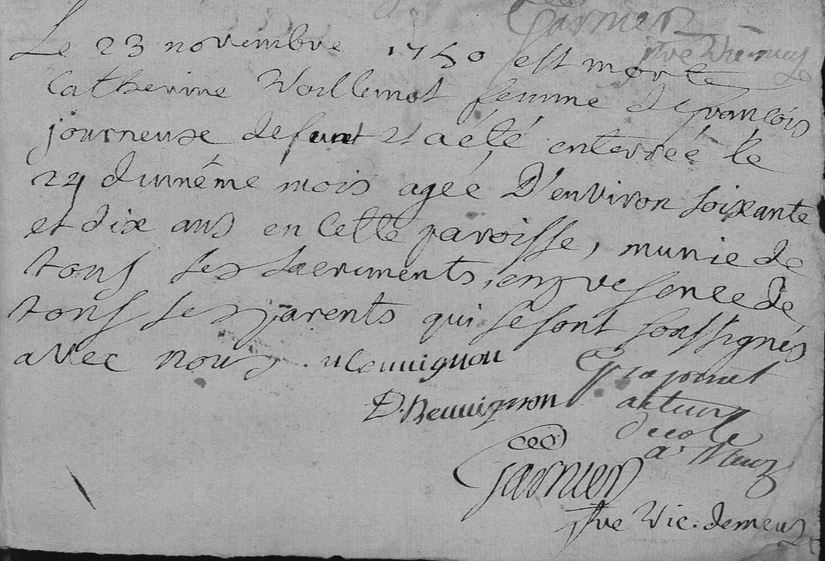 Garnier
ptre Vic.
Le 23 novembre 1750 est morte
Catherine Voillemot femme de françois
journeuse defunt et a eté enterrée le
24 du même mois agée D'environ soixante
et dix ans en cette paroisse, munie de
tous ses sacrements, en presence de
tous ses parents qui se sont soussignés
avec nous.
D. Beuvignon
recteur
d'ecole
a
Garnier
ptre Vic. demeuz